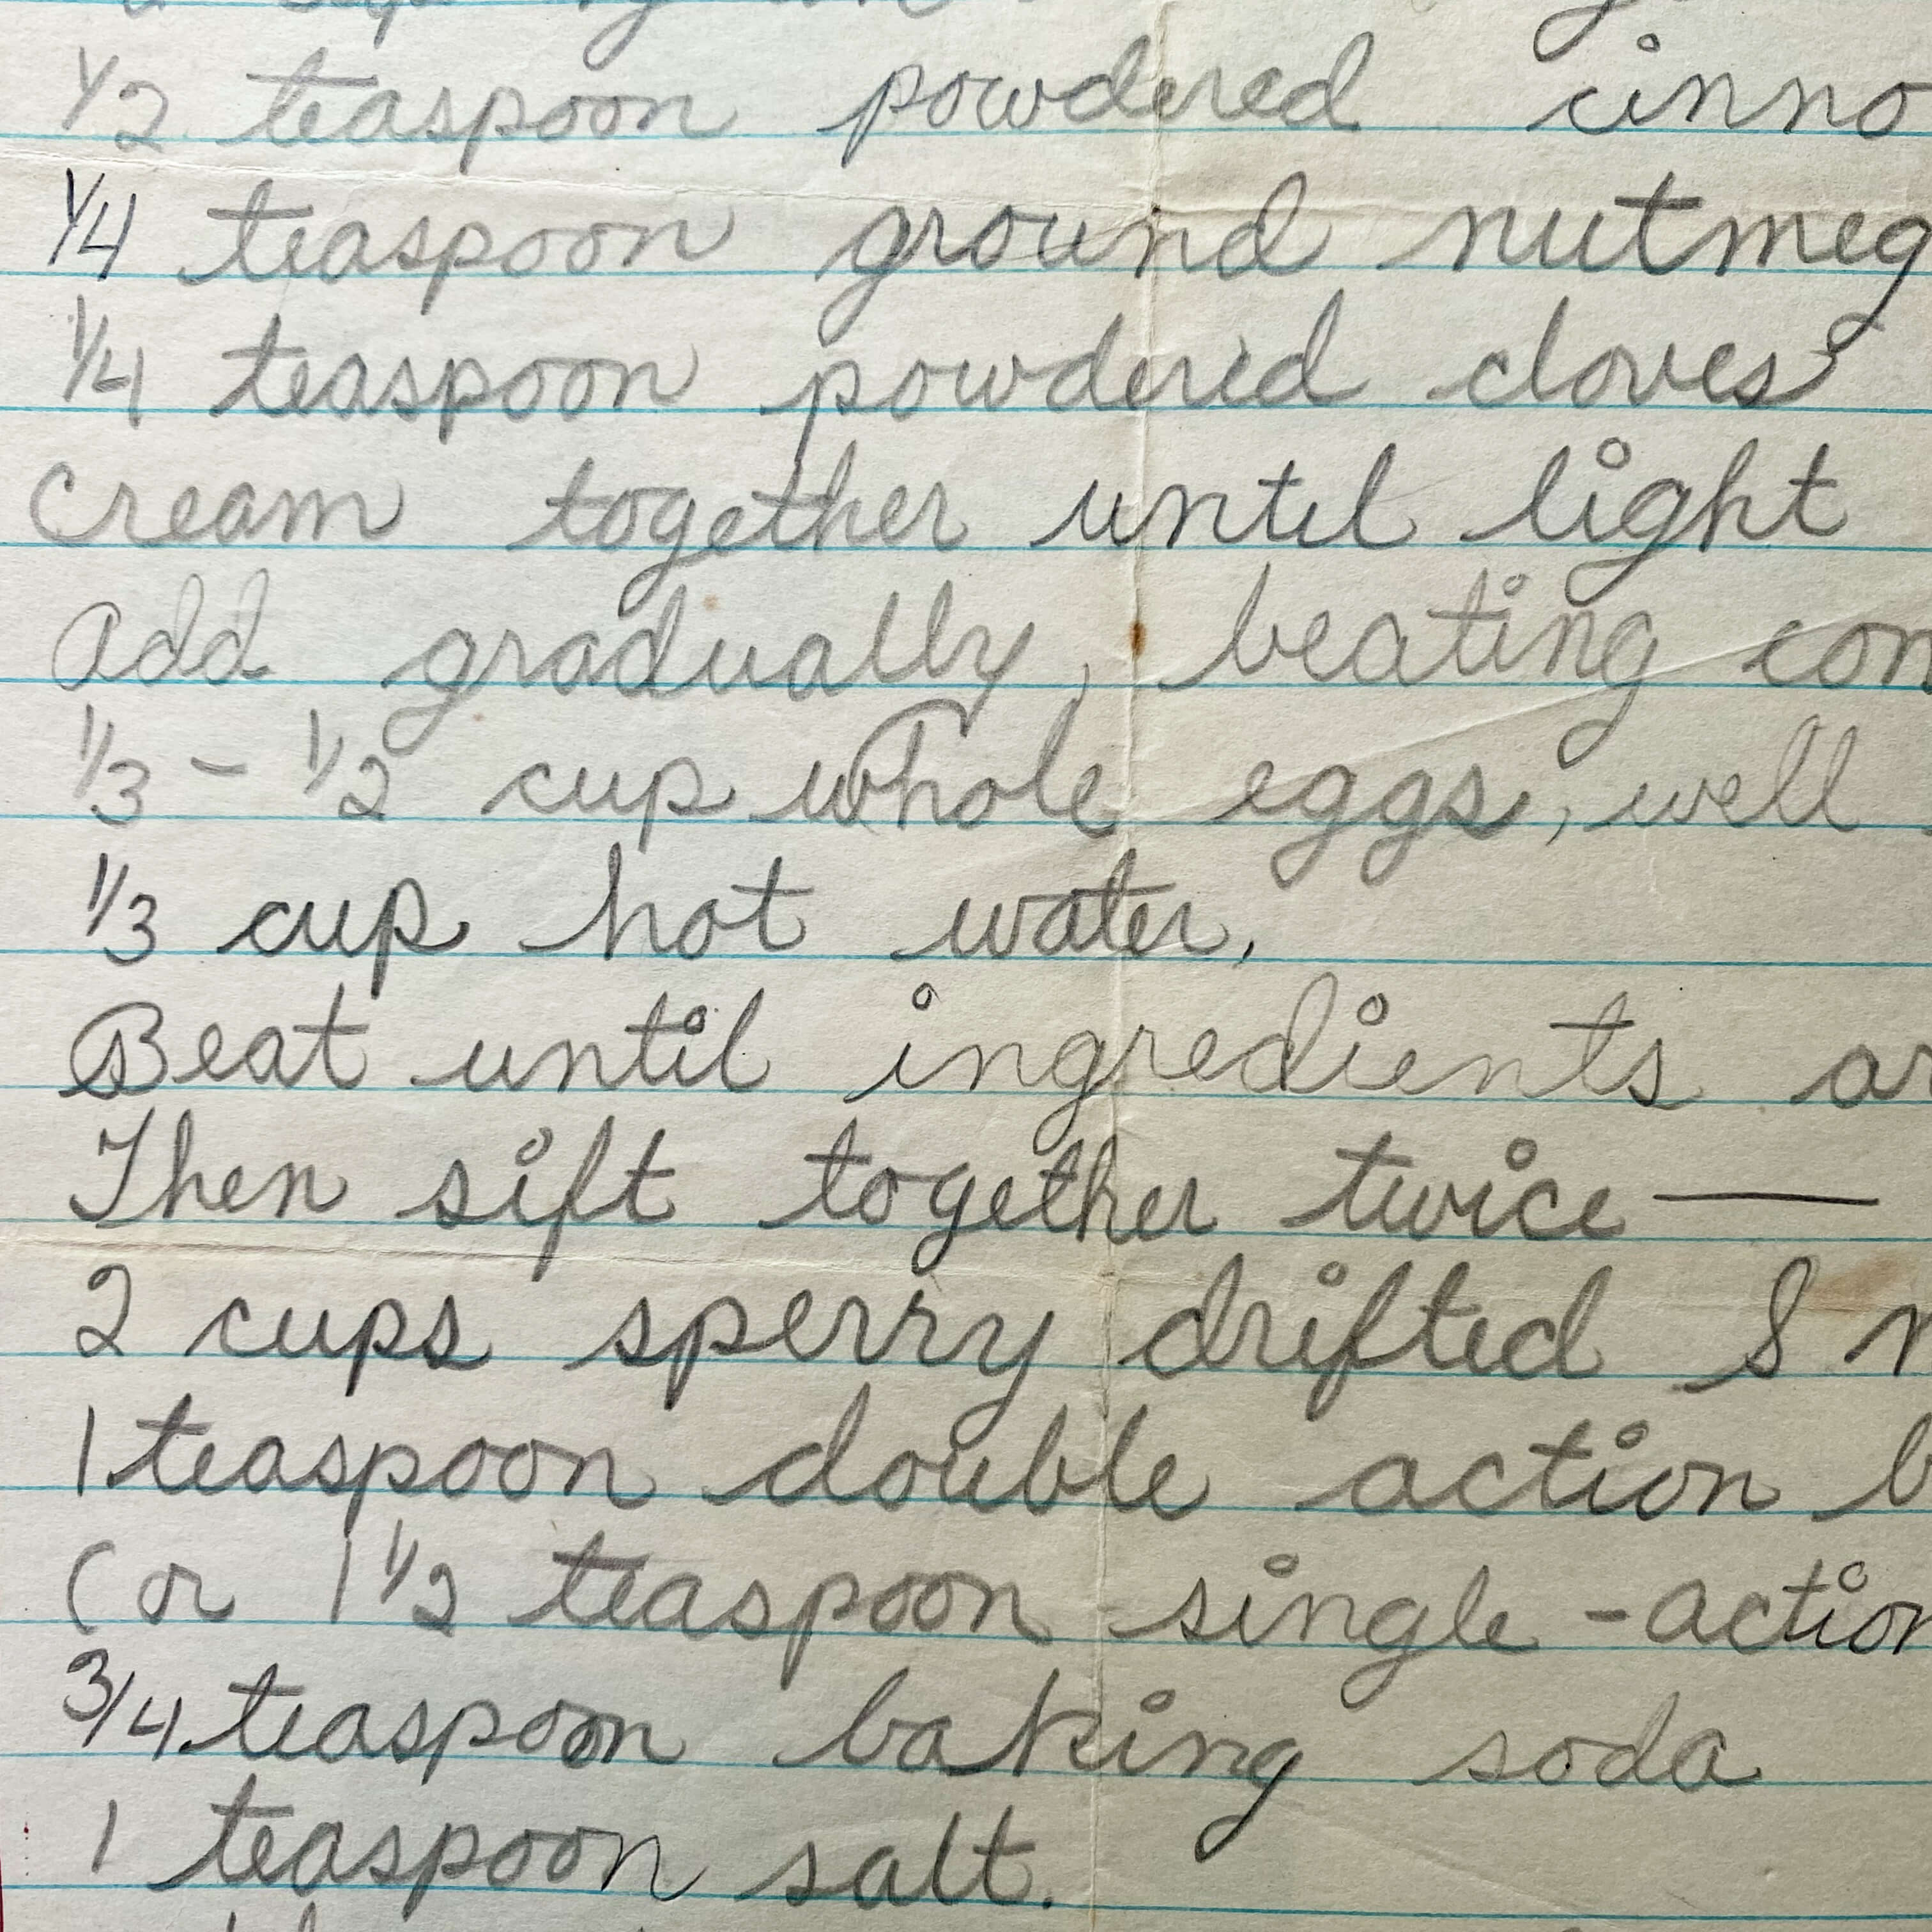 1/2 teaspoon powdered cinno
1/4 teaspoon ground nutmeg
1/4 teaspoon powdered cloves
Cream together until light
Add gradually, beating con
1/3 - 1/2 cup whole eggs, well
1/3 cup hot water,
Beat until ingredients ar
Then sift together twice —
2 cups sperry drifted S
1 teaspoon double action b
(or 1 1/2 teaspoon single - action
3/4 teaspoon baking soda
1 teaspoon salt.